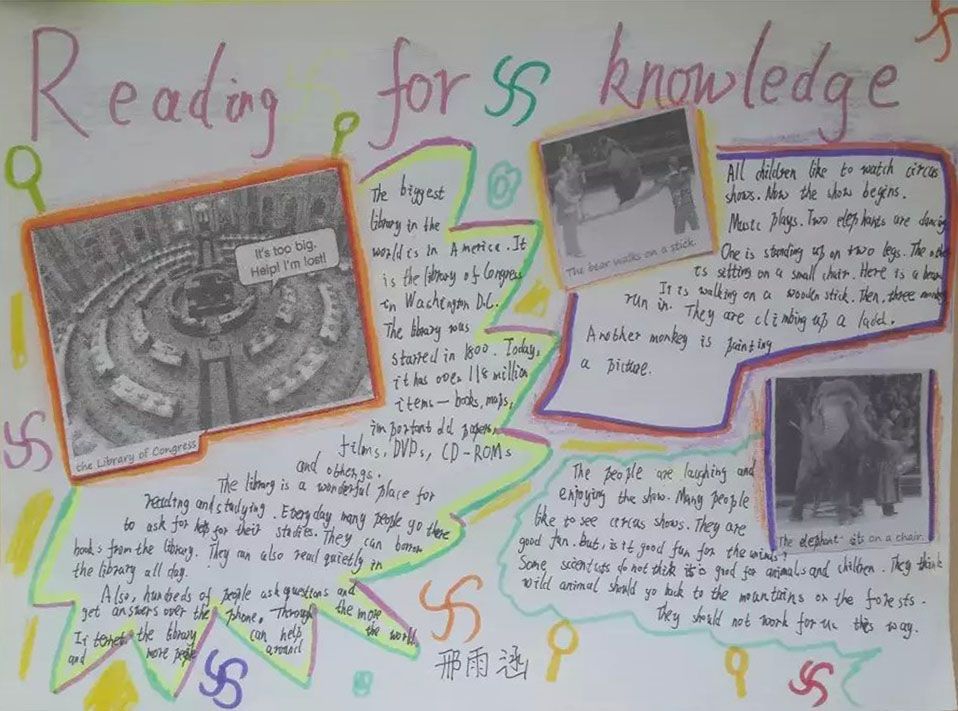 Reading for knowledge
It's too big.
Help! I'm lost!
the Library of Congress
The biggest
library in the
world is in America. It
is the library of Congress
in Wachington D.C.
The library was
starred in 1800. Today,
it has over 118 million
items — books, maps,
important old papers,
films, DVDs, CD-ROMs
and others.
The library is a wonderful place for
reading and studying. Everyday many people go there
to ask for help for their studies. They can borrow
books from the library. They can also read quietly in
the library all day.
Also, hundreds of people ask questions and
get answers over the phone. Through the more
the library can help the world
and more people around
The bear walks on a stick.
All children like to watch circus
shows. Now the show begins.
Music plays. Two elephants are dancing
One is standing up on two legs. The othe
is sitting on a small chair. Here is a bear
It is walking on a wooden stick. Then, three monkey
run in. They are climbing up a
Another monkey is painting
a picture.
The elephant sits on a chair.
The people are laughing and
enjoying the show. Many people
like to see circus shows. They are
good fun. but, is it good fun for the
Some scientists do not think it is good for animals and children. They think
wild animal should go back to the mountains or the forests.
They should not work for us this way.
邢雨涵